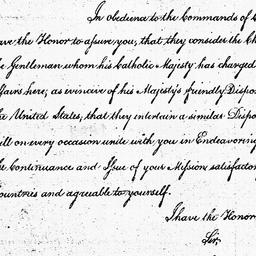 In obedience to the Commands of
have the Honor to assure you, that they consider the Ch
he Gentleman whom his Catholic Majesty has charged
ffairs here; as evincive of his Majesty's friendly Dispos
he United States, that they entertain a similar Dispo
ill on every occasion unite with you in Endeavoring
he Continuance and Issue of your Mission satisfactor
ountries and agreable to yourself.
I have the Honor
Sir,